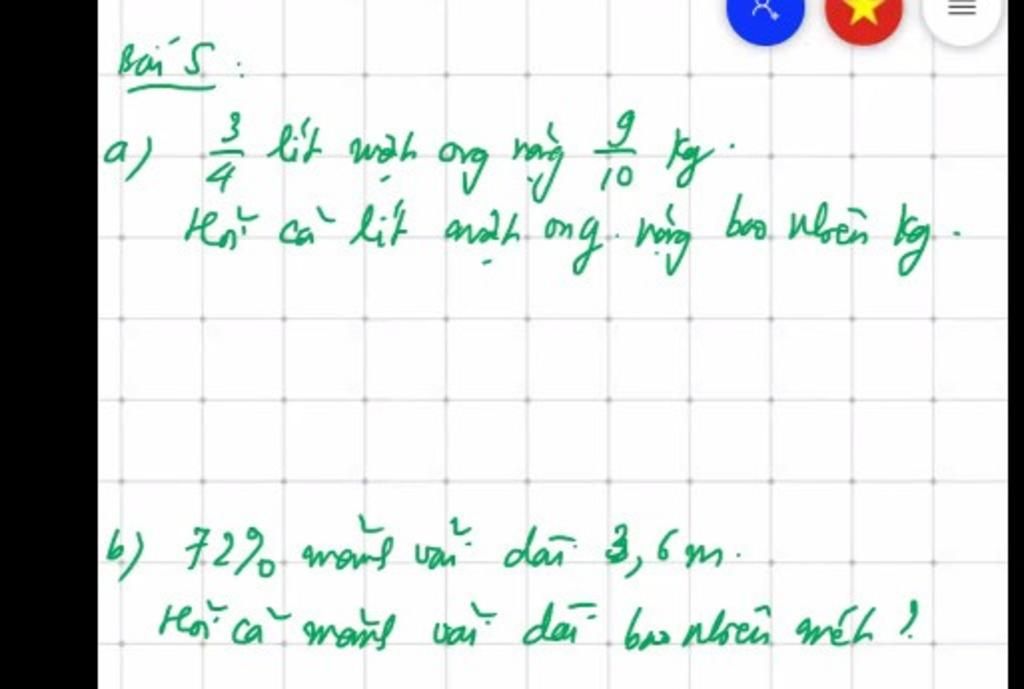 Bài 5 :
a) 3/4 lít mật ong nặng 9/10 kg.
Hỏi cả lít mật ong nặng bao nhiêu kg.
b) 72% mảnh vải dài 3,6 m.
Hỏi cả mảnh vải dài bao nhiêu mét ?